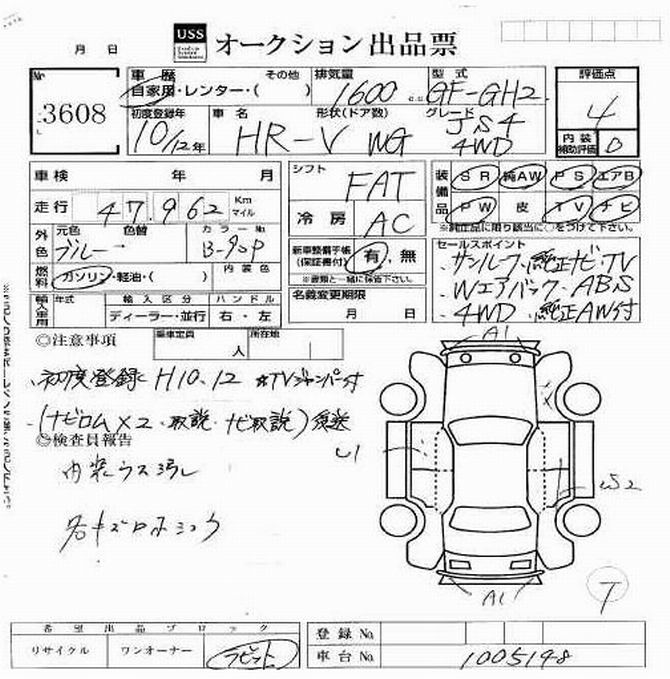 USS オークション出品票
月 日
No 3608
車歴 自家用・レンター・( ) その他
排気量 1600 c.c
型式 GF-GH2
評価点 4
初度登録年 10/12年
車名 HR-V WG
形状(ドア数) グレード JS4 4WD
内装補助評価
車検 年 月
シフト FAT
装備品 SR 純AW PS エアB
PW 皮 TV ナビ
※純正品に限り該当に○をつけて下さい。
走行 47,962 Km マイル
冷房 AC
外色 元色 色替 カラーNo
ブルー B-90P
新車整備手帳(保証書付) 有・無
※書類と一緒に保管下さい。
セールスポイント
・サンルーフ・純正ナビ・TV
・Wエアバック・ABS
・4WD・純正AW付
燃料 ガソリン・軽油・( ) 内装色
名義変更期限 月 日
輸入車用 年式 輸入区分 ハンドル
ディーラー・並行 右・左
◎注意事項 乗車定員 人 所在地
・初度登録 H10.12 ☆TVジャンパー付
・(ナビロム×2・取説・ナビ取説)後送
◎検査員報告
内装ウス汚レ
A1
U1
A1
7
希望出品ブロック
リサイクル ワンオーナー ラビット
登録No
車台No 1005198